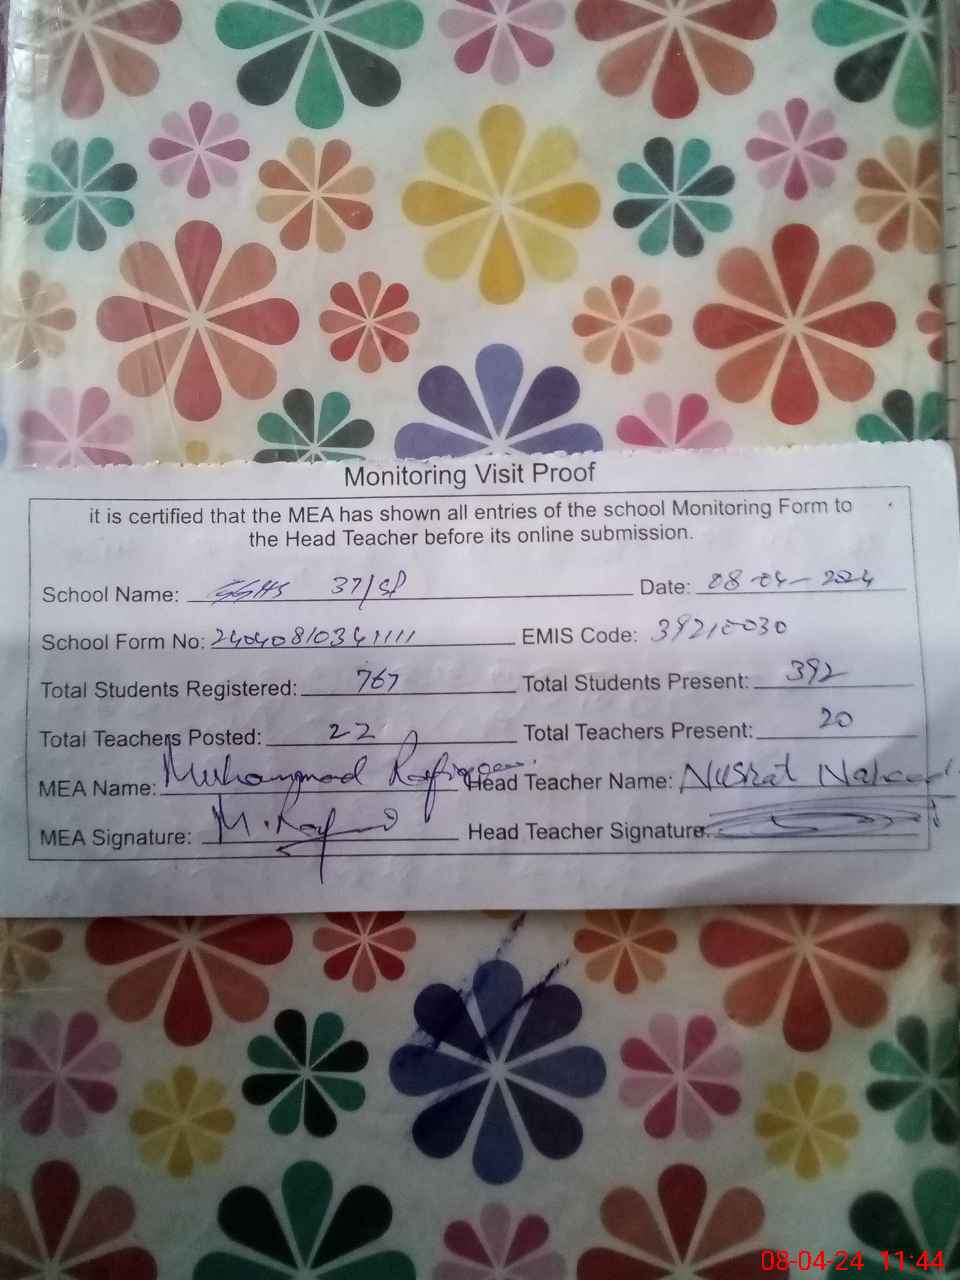 Monitoring Visit Proof
it is certified that the MEA has shown all entries of the school Monitoring Form to
the Head Teacher before its online submission.
School Name: GGHS 37/SP Date: 08-04-2024
School Form No: 24040810341111 EMIS Code: 39210030
Total Students Registered: 767 Total Students Present: 392
Total Teachers Posted: 22 Total Teachers Present: 20
MEA Name: Muhammad Head Teacher Name: Nusrat Naheed
MEA Signature: Head Teacher Signature:
08-04-24 11:44